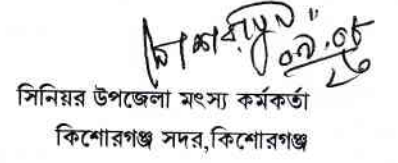 ০৯.০৮
২০
সিনিয়র উপজেলা মৎস্য কর্মকর্তা
কিশোরগঞ্জ সদর,কিশোরগঞ্জ